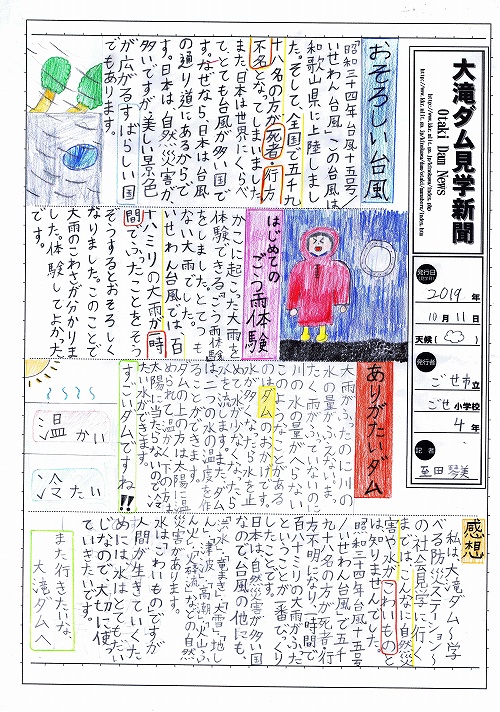 大滝ダム見学新聞
Otaki Dam News
発行日
2019年
10月11日
天候
発行者
ごせ市立
ごせ小学校
4年
記者
おそろしい台風
「昭和三十四年台風十五号/
いせわん台風」この台風は
和歌山県に上陸しまし
た。そして、全国で五千九
十八名の方が死者・行方
不名となってしまいました。
また日本は世界にくらべ
て、とても台風が多い国で
す。なぜなら、日本は台風
の通り道にあるからで
す。日本は、自然災害が
多いですが、美しい景色
が広がるすばらしい国
でもあります。
はじめての
ごう雨体験
かこに起こった大雨を
体験できる「ごう雨体験」
をしました。とてつも
ない大雨でした。
いせわん台風では、百
八十ハミリの大雨が一時
間でふったことをそう
ぞうするとおそろしく
なりました。このことで
大雨のこわさが分かりま
した。体験してよかった
です。
ありがたいダム
大雨がふったのに川の
水の量がふえないまっ
たく雨がふっていないのに
川の水の量がへらない
このようなことがある
のはダムのおかげです。
水が多くなったら水を止
めて水が少なくなったら
水を流します。また、ダム
は二つの水の温度を作
ることができます。
ダムの上の方は太陽に温
められて温かい下の方は
太陽に当たらないので冷
たい水ができます。
すごいダムですね!!
温かい
冷たい
感想
私は、大滝ダム〜学
べる防災ステーション〜
の社会見学に行く
までは、こんなに自然災
害や水がこわいものと
は知りませんでした。
昭和三十四年台風十五号
/いせわん台風」で五千
九十八名の方が死者・行
方不明になり、一時間で
百八十ミリの大雨がふった
ということが一番びっくり
したことです。
日本は、自然災害が多い国
なので台風の他にも、
「こう水」「竜まき」「大雪」「地し
ん」「津波」「高潮」「火山ふ
ん火」「火さい流」などの自然
災害があります。
水は「こわいもの」ですが
人間が生きていくた
めには水はとてもだい
じなので、大切に使っ
ていきたいです。
また行きたいな、
大滝ダムへ。